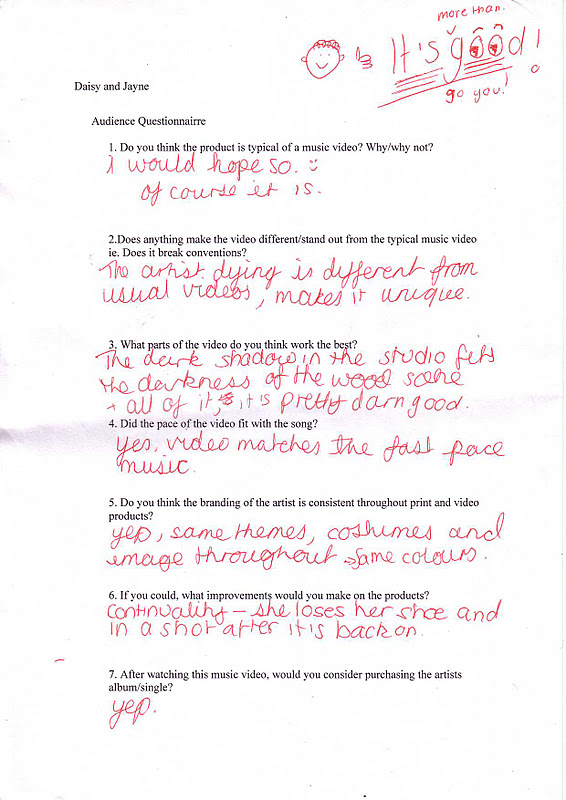 more than.
It's good!
go you!
Daisy and Jayne
Audience Questionnairre
1. Do you think the product is typical of a music video? Why/why not?
I would hope so. :)
of course it is.
2.Does anything make the video different/stand out from the typical music video
ie. Does it break conventions?
The artist dying is different from
usual videos, makes it unique.
3. What parts of the video do you think work the best?
The dark shadow in the studio fits
the darkness of the wood scene
+ all of it, it is pretty darn good.
4. Did the pace of the video fit with the song?
Yes, video matches the fast pace
music.
5. Do you think the branding of the artist is consistent throughout print and video
products?
yep, same themes, costumes and
image throughout same colours.
6. If you could, what improvements would you make on the products?
Continuality – she loses her shoe and
in a shot after it is back on.
7. After watching this music video, would you consider purchasing the artists
album/single?
yep.